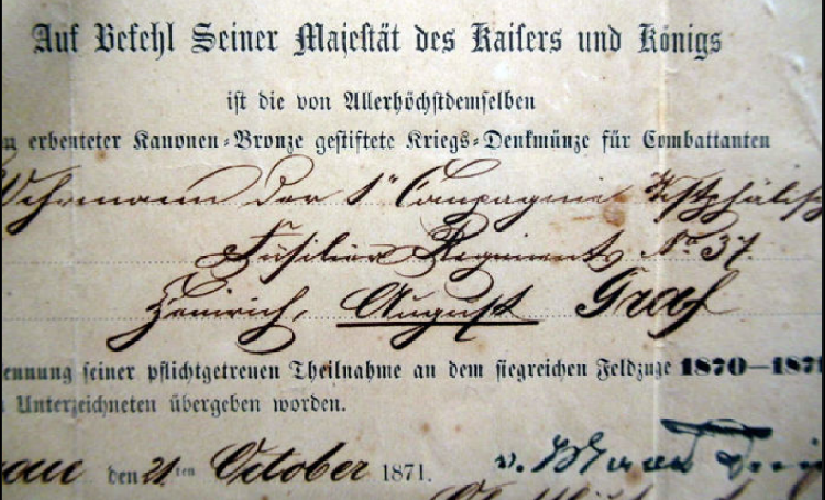 Auf Befehl Seiner Majestät des Kaisers und Königs
ist die von Allerhöchstdemselben
erbeuteter Kanonen-Bronze gestiftete Kriegs-Denkmünze für Combattanten
Wehrmann der 1ten Compagnie Westphälisch
Füsilier Regiments No 37.
Heinrich, August Graf
ennung seiner pflichtgetreuen Theilnahme an dem siegreichen Feldzuge 1870—1871
Unterzeichneten übergeben worden.
den 21ten October 1871.
v.